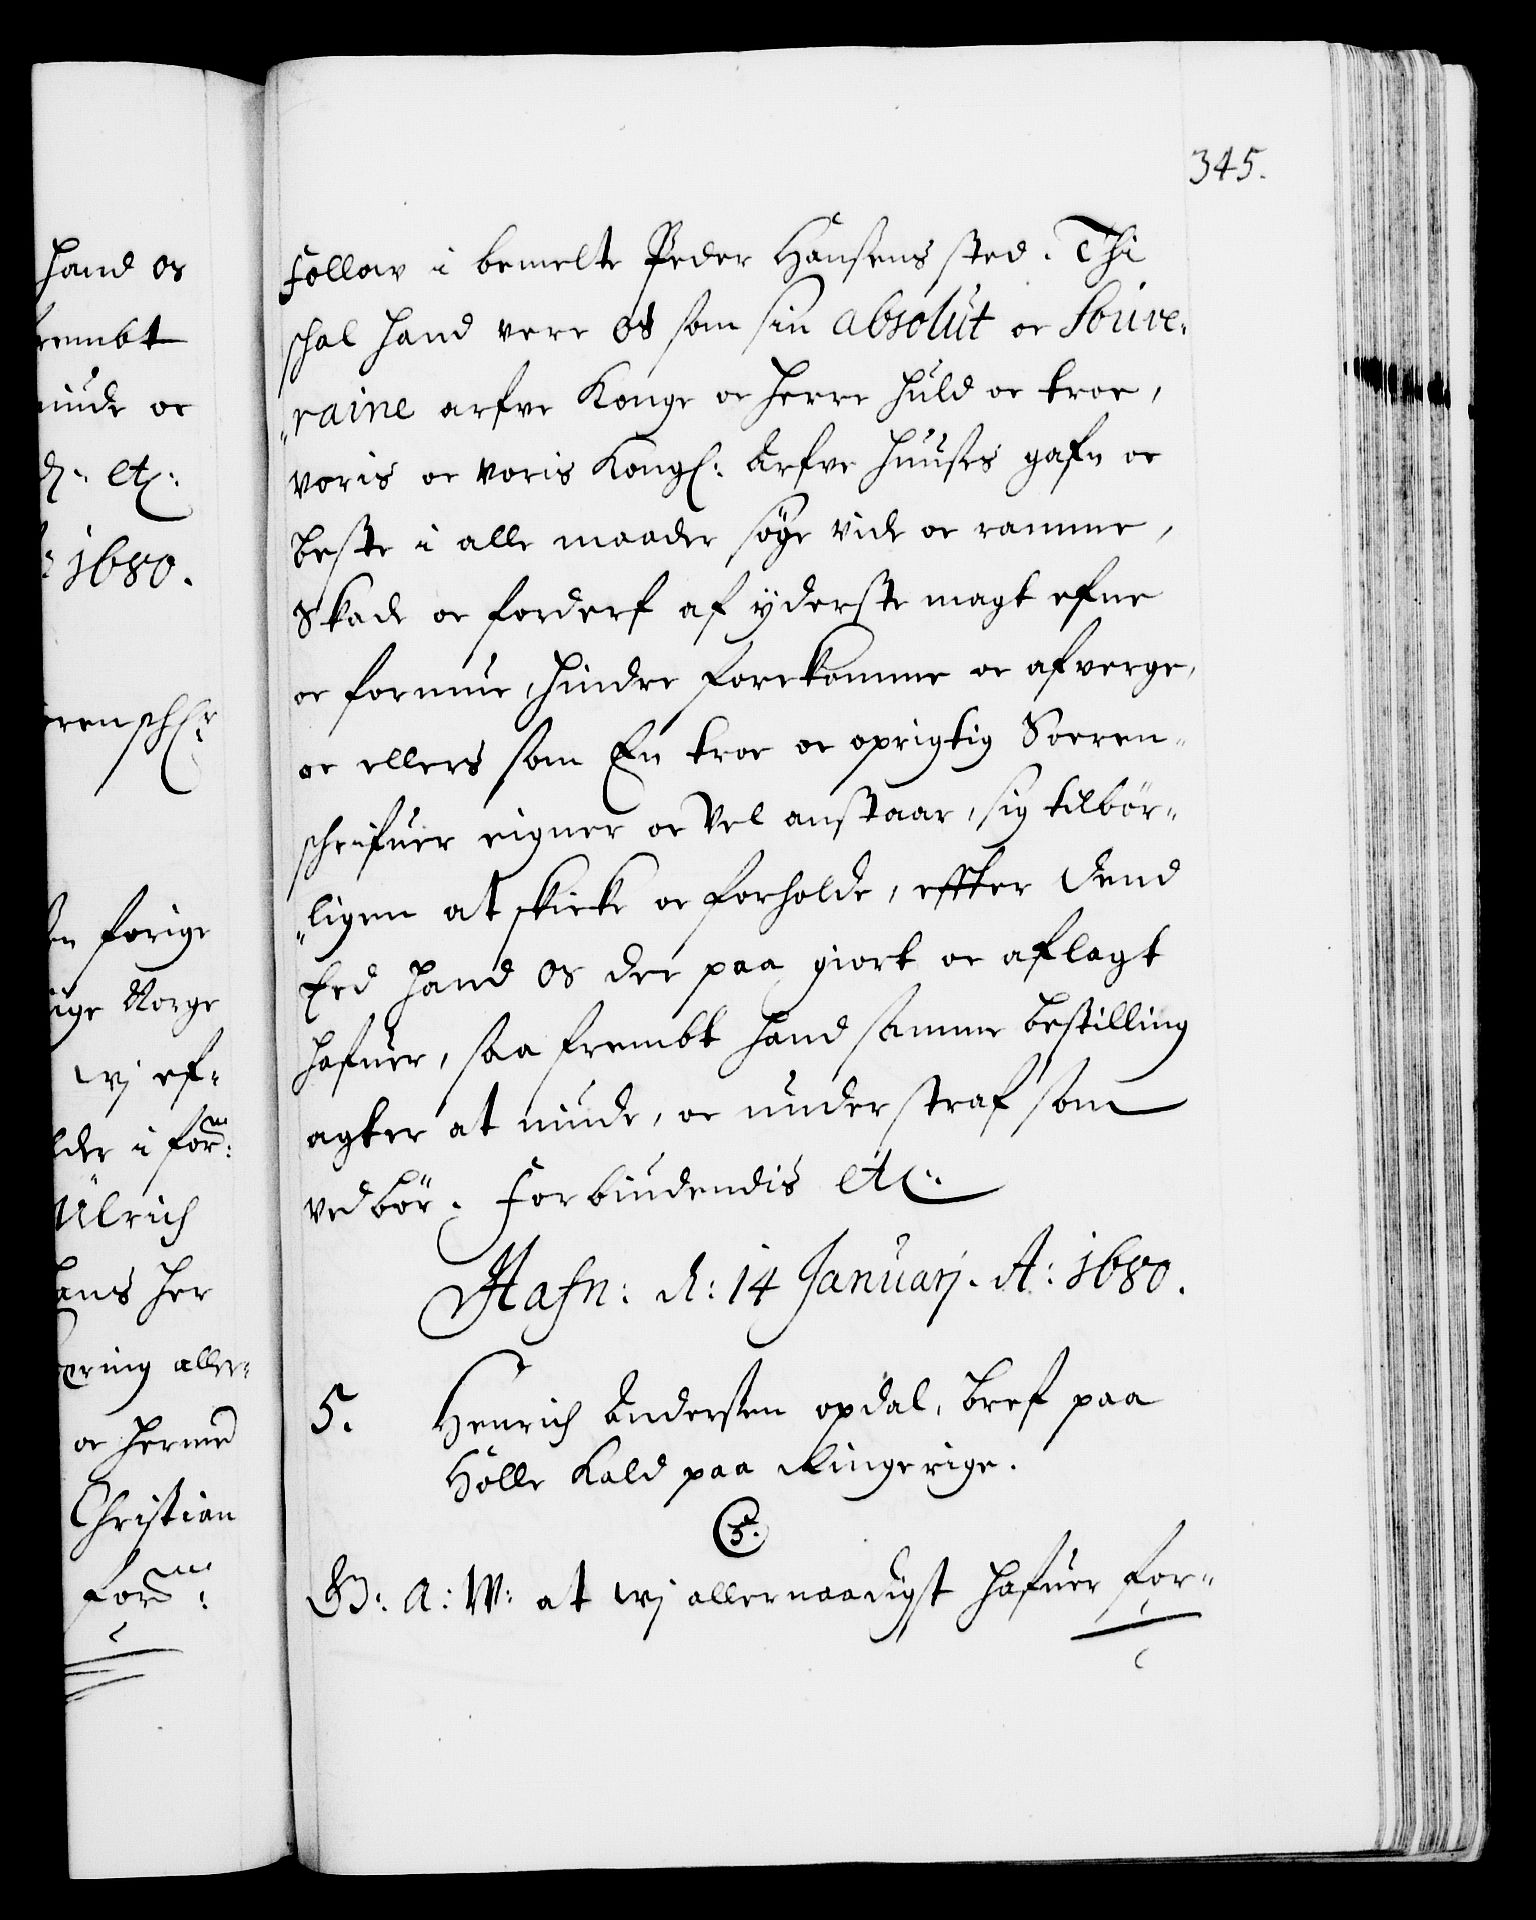 hand os
frembt
niude oc
d: etc:
1680.
orenschr:
en forige
rige Norge
wj ef-
lder i for:
Ulrich
hans her
aller-
oc hermed
Christian
for:
345.
Follow i bemelte Peder Hansens sted. Thi
schal hand vere os som sin absolut oc Souve-
raine arfve Konge oc herre huld oc troe,
voris oc voris Kongl: Arfve huuses gafn oc
beste i alle maader søge vide oc ramme,
Skade oc forderf af yderste magt efne
oc formue, hindre forekomme oc afverge,
oc ellers som En troe oc oprigtig Soeren-
schrifuer eigner oc Vel anstaar, sig tilbør-
ligen at skicke oc forholde, effter dend
Eed hand os der paa giort oc aflagt
hafuer, saa frembt hand samme bestilling
agter at niude, oc under straf som
vedbør. Forbiudendis etc:
Hafn: d: 14 Januarj. A: 1680.
5. Henrich Andersen opdal, bref paa
Holle Kald paa Ringerige.
5.
G: A: W: at wj allernaadigst hafuer for-